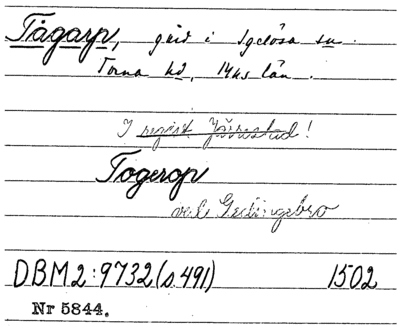 Tågarp, gård i Igelösa sn.
Torna hd, Mhs län.
I regist. Järrestad!
Togerop
vid Gedingebro
DBM 2:9732 (s. 491) 1502
Nr 5844.